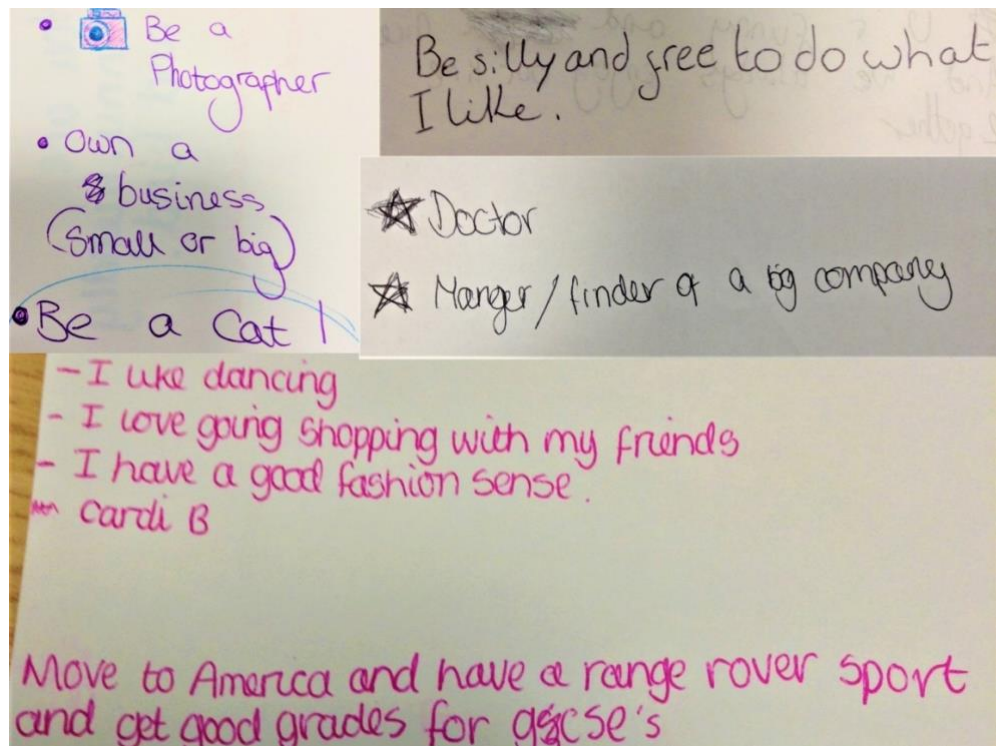 • Be a
Photographer
• Own a
business
(Small or big)
• Be a Cat !
Be silly and free to do what
I like.
Doctor
Manger/finder of a big company
- I like dancing
- I love going shopping with my friends
- I have a good fashion sense.
- Cardi B
Move to America and have a range rover sport
and get good grades for gscse's